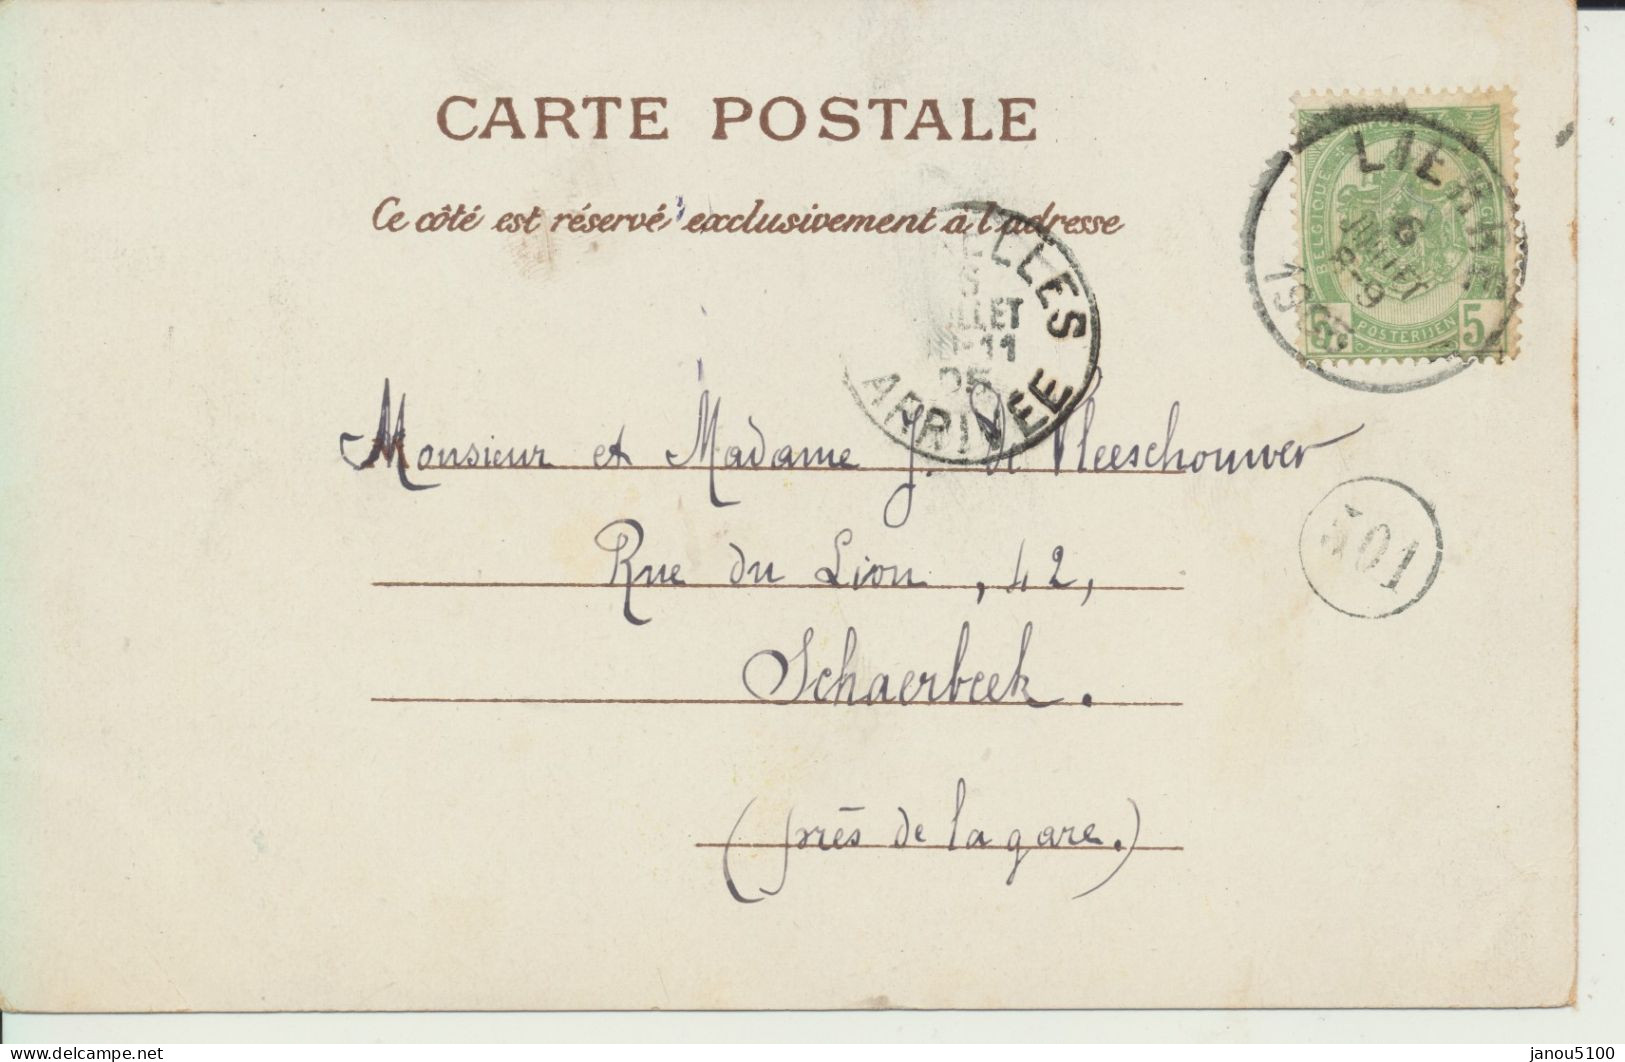 CARTE POSTALE
Ce côté est réservé exclusivement à l'adresse
BELGIQUE
POSTERIJEN
5 5
6
JUILLET
8-9
ELLES
LLET
11
05
ARRIVEE
Monsieur et Madame J. de Vleeschouwer
Rue du Lion, 42,
Schaerbeek.
(près de la gare.)
301
www.delcampe.net
janou5100